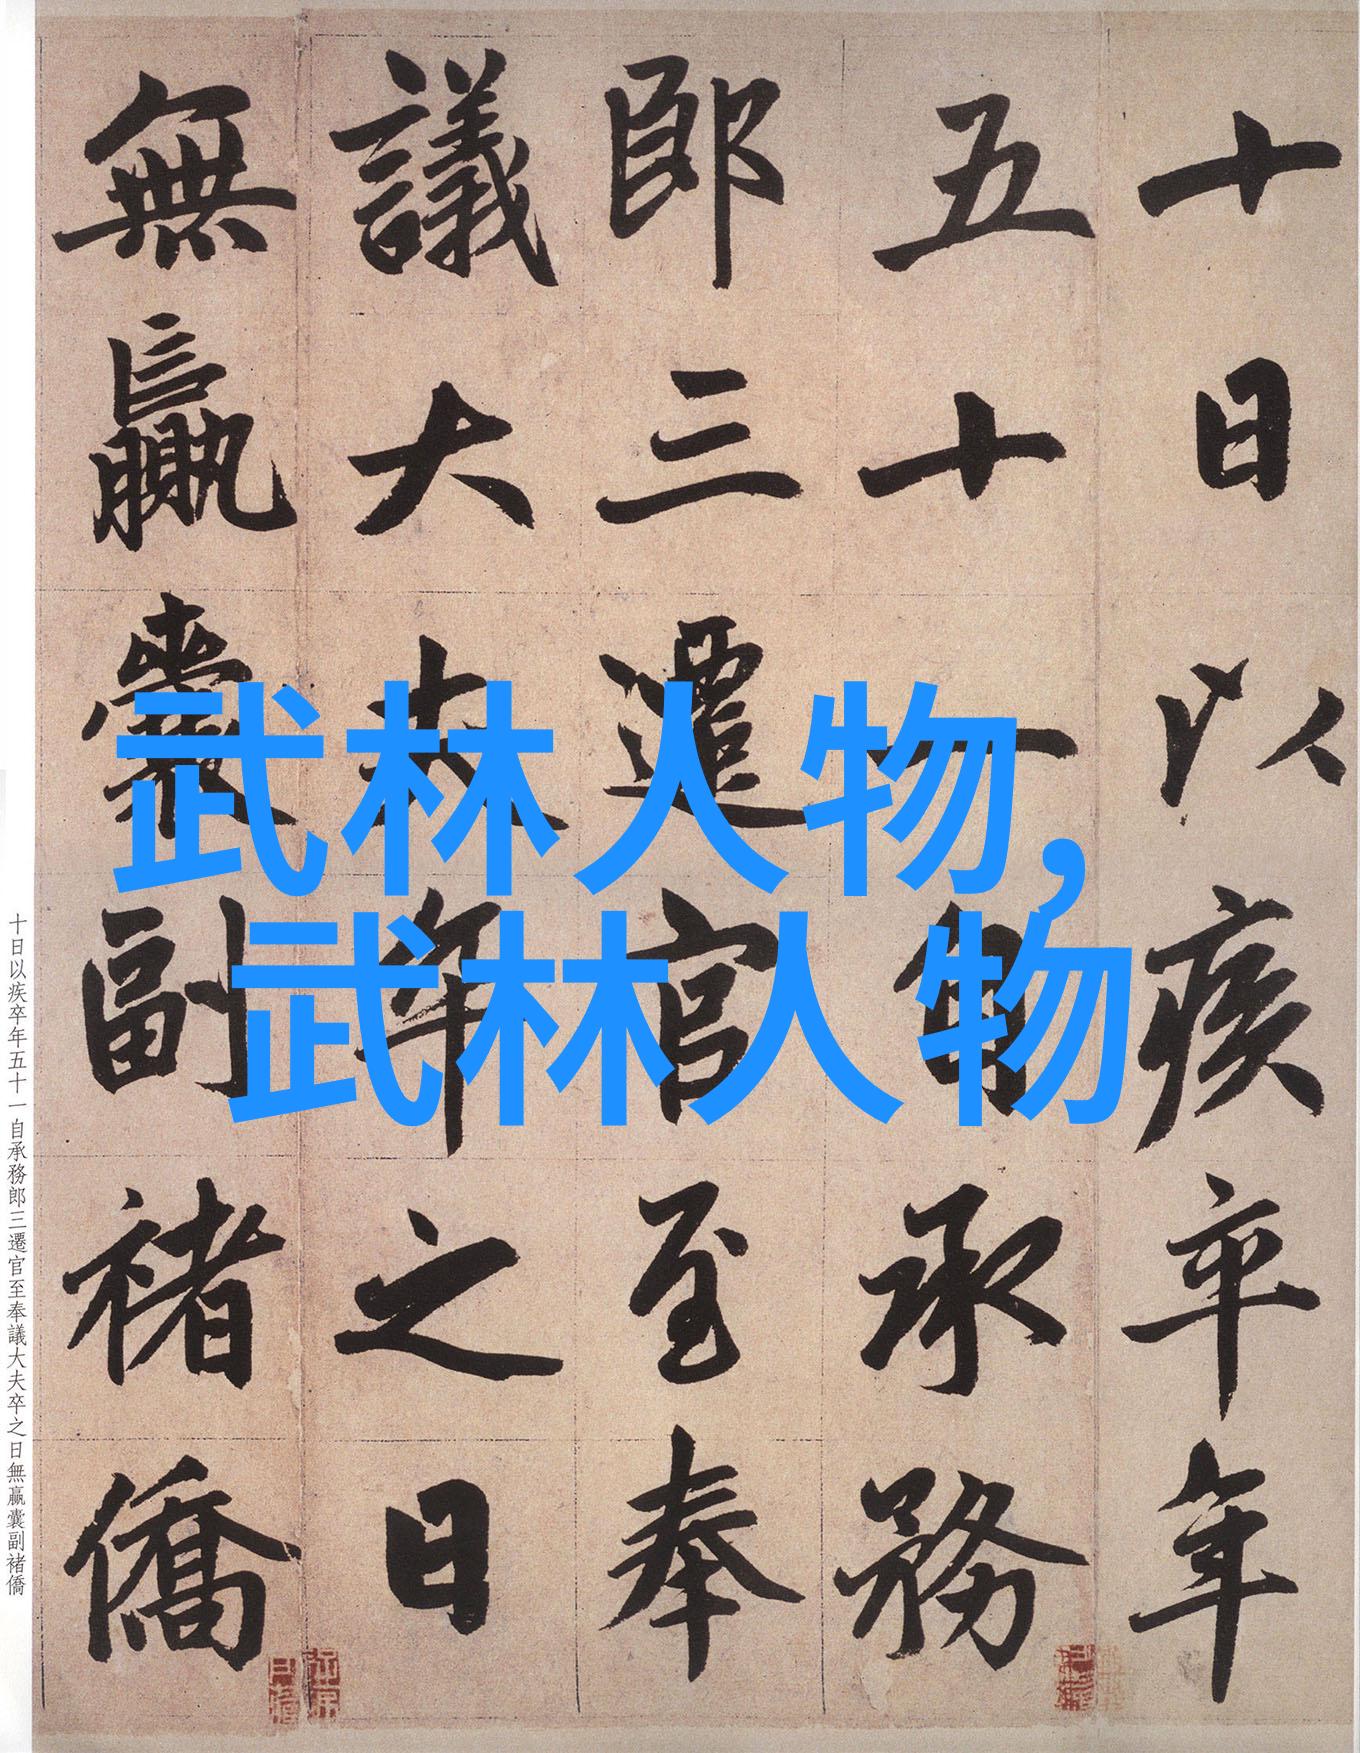 十日以疾卒年
五十一自承務
郎三遷官至奉
議大夫卒之日
無贏囊副褚僑
武林人物，
武林人物
十日以疾卒年五十一自承務郎三遷官至奉議大夫卒之日無贏囊副褚僑